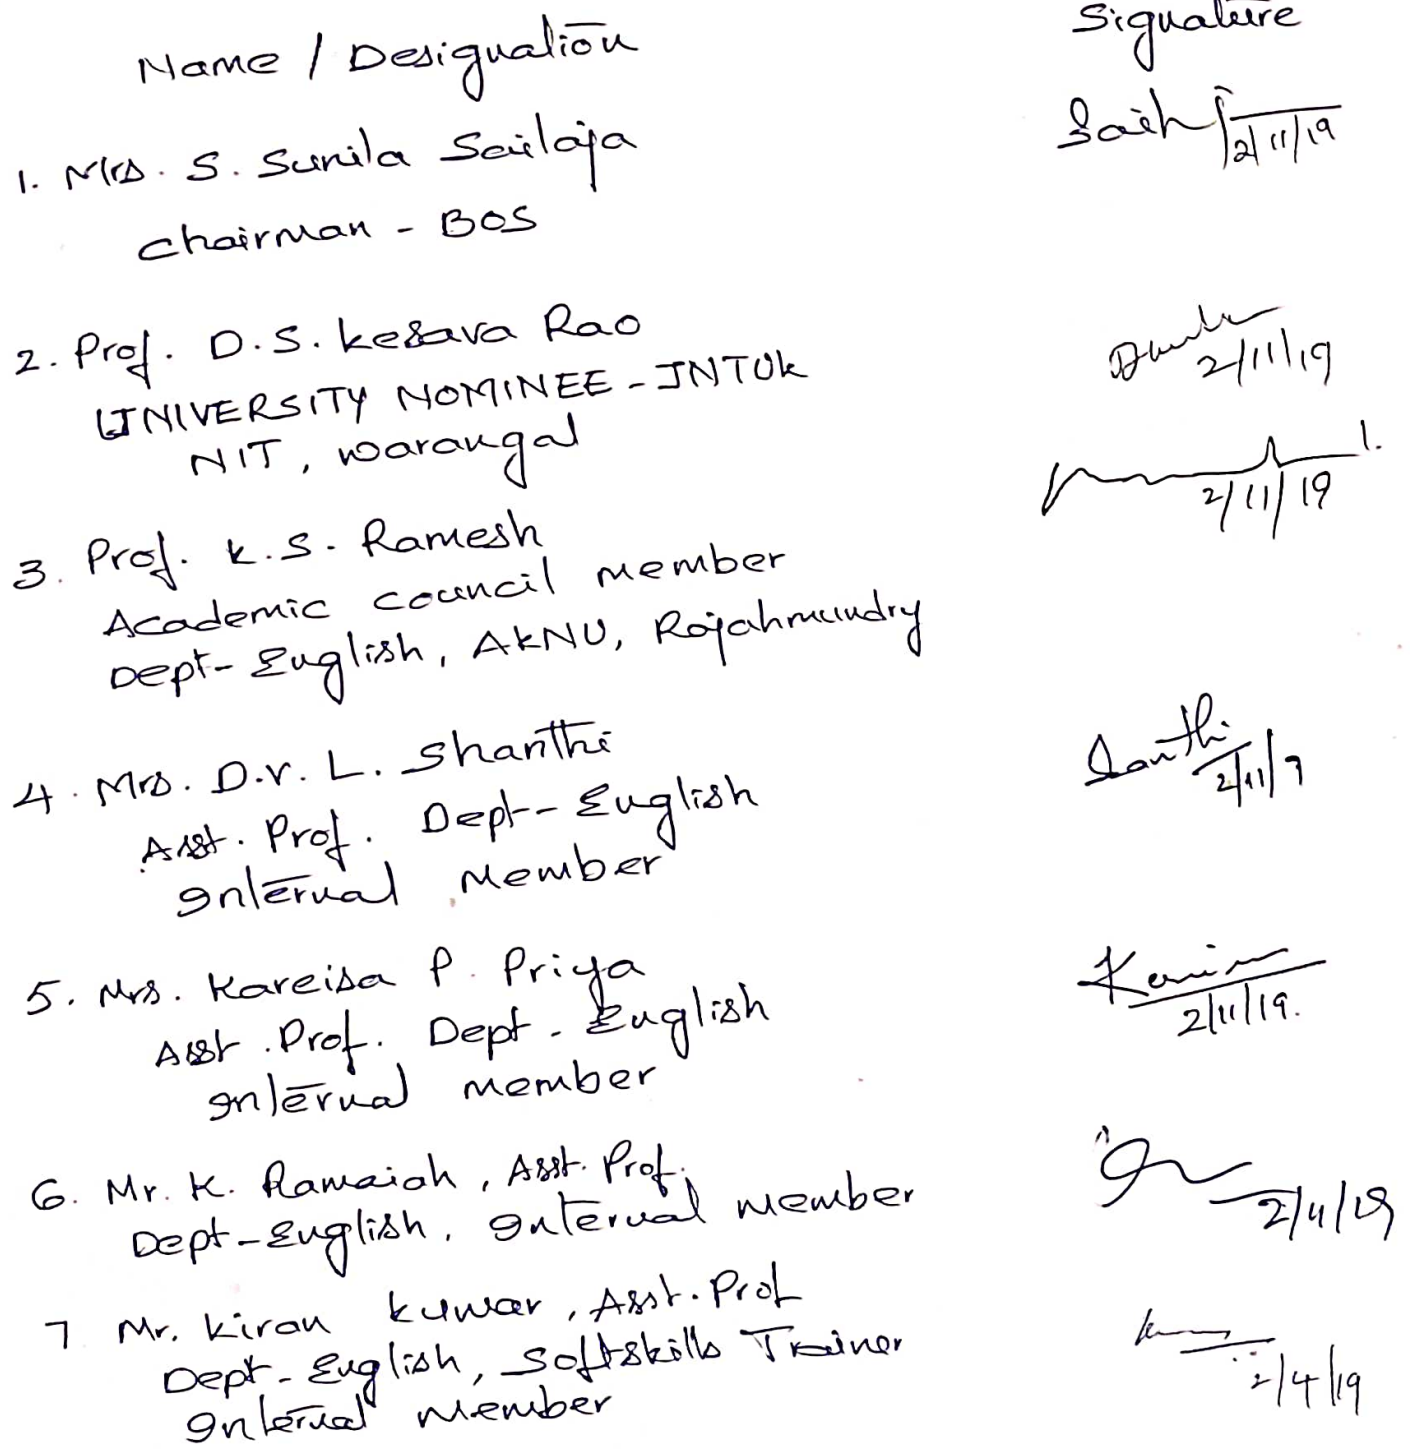 Name / Designation Signature
1. Mrs. S. Sunila Sailaja
2/11/19
Chairman - BOS
2. Prof. D.S. Kesava Rao
2/11/19
UNIVERSITY NOMINEE - JNTUK
NIT, Warangal
2/11/19
3. Prof. K.S. Ramesh
Academic Council Member
Dept- English, AKNU, Rajahmundry
4. Mrs. D.V. L. Shanthi Santhi
2/11/19
Asst. Prof. Dept- English
Internal Member
5. Mrs. Kareisa P. Priya
2/11/19.
Asst. Prof. Dept - English
Internal member
6. Mr. K. Ramaiah, Asst. Prof.
Dept - English, Internal member 2/11/19
7 Mr. Kiran Kumar, Asst. Prof
Dept - English, Softskills Trainer
2/4/19
Internal Member